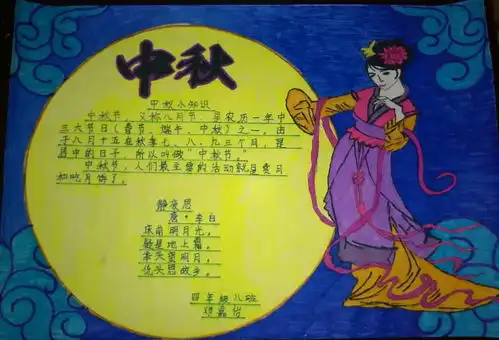 中秋
中秋小知识
中秋节，又称八月节，是农历一年中
三大节日（春节、端午、中秋）之一，由
于八月十五在秋季七、八、九三个月，是
居中的日子，所以叫做“中秋节”。
中秋节，人们最主要的活动就是赏月
和吃月饼了。
静夜思
唐·李白
床前明月光，
疑是地上霜。
举头望明月，
低头思故乡。
四年级八班
邓嘉怡